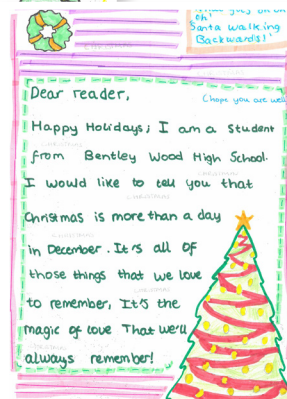 oh!
Santa walking
Backwards!
Dear reader,
(hope you are well
Happy Holidays; I am a student
from Bentley Wood High School.
I would like to tell you that
Christmas is more than a day
in December. It's all of
those things that we love
to remember, It's the
magic of love That we'll
always remember!